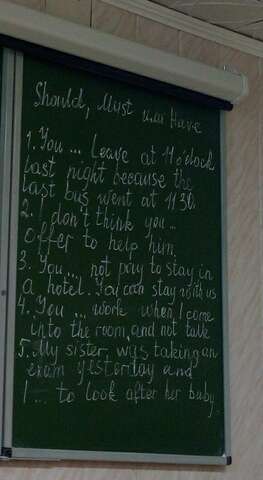 Should, Must или Have
1. You ... leave at 11 o'clock
last night because the
last bus went at 11 30.
2. I don't think you ...
offer to help him.
3. You ... not pay to stay in
a hotel. You can stay with us
4. You ... work when I come
into the room, and not talk
5. My sister was taking an
exam yesterday and
I ... to look after her baby